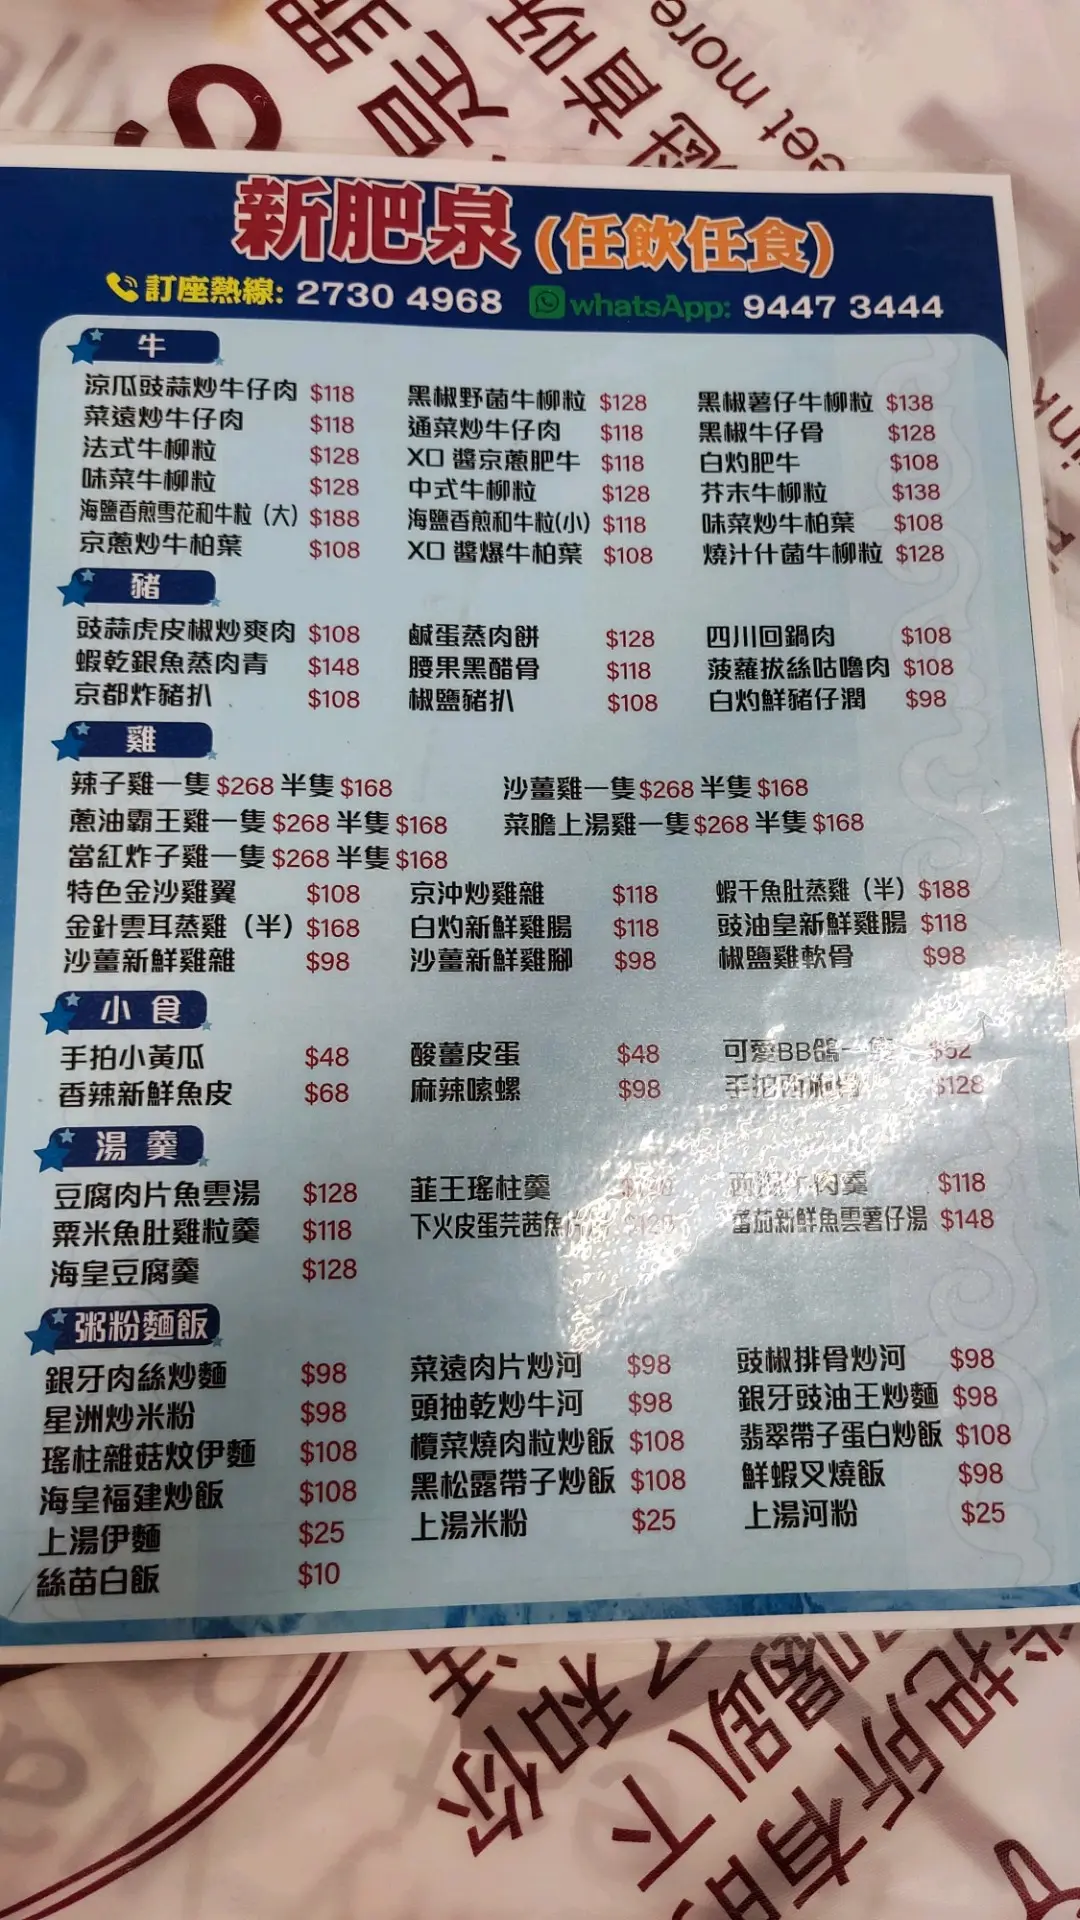 eet more
新肥泉 (任飲任食)
訂座熱線: 2730 4968 whatsApp: 9447 3444
牛
涼瓜豉蒜炒牛仔肉 $118 黑椒野菌牛柳粒 $128 黑椒薯仔牛柳粒 $138
菜遠炒牛仔肉 $118 通菜炒牛仔肉 $118 黑椒牛仔骨 $128
法式牛柳粒 $128 XO 醬京蔥肥牛 $118 白灼肥牛 $108
味菜牛柳粒 $128 中式牛柳粒 $128 芥末牛柳粒 $138
海鹽香煎雪花和牛粒 (大) $188 海鹽香煎和牛粒(小) $118 味菜炒牛柏葉 $108
京蔥炒牛柏葉 $108 XO 醬爆牛柏葉 $108 燒汁什菌牛柳粒 $128
豬
豉蒜虎皮椒炒爽肉 $108 鹹蛋蒸肉餅 $128 四川回鍋肉 $108
蝦乾銀魚蒸肉青 $148 腰果黑醋骨 $118 菠蘿拔絲咕嚕肉 $108
京都炸豬扒 $108 椒鹽豬扒 $108 白灼鮮豬仔潤 $98
雞
辣子雞一隻 $268 半隻 $168 沙薑雞一隻 $268 半隻 $168
蔥油霸王雞一隻 $268 半隻 $168 菜膽上湯雞一隻 $268 半隻 $168
當紅炸子雞一隻 $268 半隻 $168
特色金沙雞翼 $108 京沖炒雞雜 $118 蝦干魚肚蒸雞 (半) $188
金針雲耳蒸雞 (半) $168 白灼新鮮雞腸 $118 豉油皇新鮮雞腸 $118
沙薑新鮮雞雜 $98 沙薑新鮮雞腳 $98 椒鹽雞軟骨 $98
小食
手拍小黃瓜 $48 酸薑皮蛋 $48 可愛BB鴿一隻 $52
香辣新鮮魚皮 $68 麻辣嗦螺 $98 $128
湯羹
豆腐肉片魚雲湯 $128 韮王瑤柱羹 西湖牛肉羹 $118
粟米魚肚雞粒羹 $118 下火皮蛋芫茜魚 蕃茄新鮮魚雲薯仔湯 $148
海皇豆腐羹 $128
粥粉麵飯
銀牙肉絲炒麵 $98 菜遠肉片炒河 $98 豉椒排骨炒河 $98
星洲炒米粉 $98 頭抽乾炒牛河 $98 銀牙豉油王炒麵 $98
瑤柱雜菇炆伊麵 $108 欖菜燒肉粒炒飯 $108 翡翠帶子蛋白炒飯 $108
海皇福建炒飯 $108 黑松露帶子炒飯 $108 鮮蝦叉燒飯 $98
上湯伊麵 $25 上湯米粉 $25 上湯河粉 $25
絲苗白飯 $10
和你
趴下
把所有的